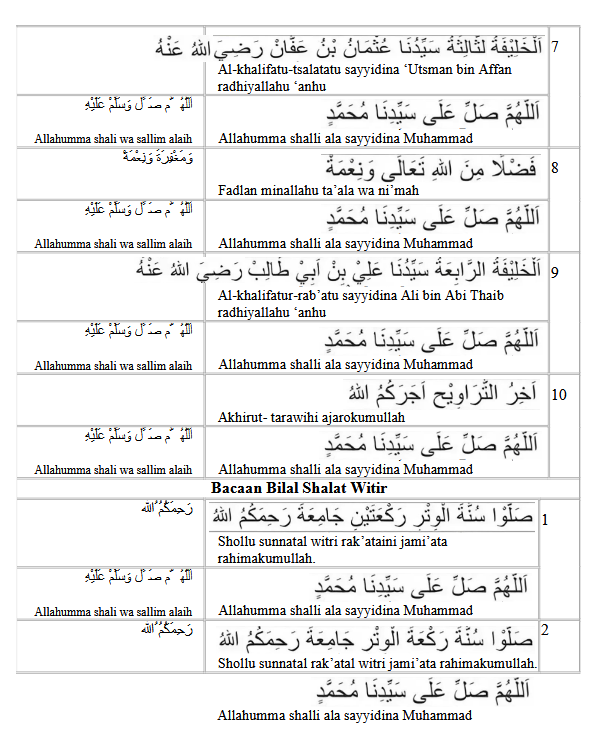 7 اَلْخَلِيْفَةُ لثَّالِثَةُ سَيِّدُنَا عُثْمَانُ بْنُ عَفَّانْ رَضِيَ اللهُ عَنْهُ
Al-khalifatu-tsalatatu sayyidina ‘Utsman bin Affan
radhiyallahu ‘anhu
اَللّٰهُمَّ صَلِّ عَلَى سَيِّدِنَا مُحَمَّدٍ اَللّٰهُمَّ صَلِّ وَسَلِّمْ عَلَيْهِ
Allahumma shalli ala sayyidina Muhammad Allahumma shali wa sallim alaih
8 فَضْلًا مِنَ اللهِ تَعَالَى وَنِعْمَةٌ وَمَغْفِرَةً وَنِعْمَةْ
Fadlan minallahu ta’ala wa ni’mah
اَللّٰهُمَّ صَلِّ عَلَى سَيِّدِنَا مُحَمَّدٍ اَللّٰهُمَّ صَلِّ وَسَلِّمْ عَلَيْهِ
Allahumma shalli ala sayyidina Muhammad Allahumma shali wa sallim alaih
9 اَلْخَلِيْفَةُ الرَّابِعَةُ سَيِّدُنَا عَلِيْ بِنْ اَبِيْ طَالِبْ رَضِيَ اللهُ عَنْهُ
Al-khalifatur-rab’atu sayyidina Ali bin Abi Thaib
radhiyallahu ‘anhu
اَللّٰهُمَّ صَلِّ عَلَى سَيِّدِنَا مُحَمَّدٍ اَللّٰهُمَّ صَلِّ وَسَلِّمْ عَلَيْهِ
Allahumma shalli ala sayyidina Muhammad Allahumma shali wa sallim alaih
10 اَخِرُ التَّرَاوِيْحِ اَجَرَكُمُ اللهُ
Akhirut- tarawihi ajarokumullah
اَللّٰهُمَّ صَلِّ عَلَى سَيِّدِنَا مُحَمَّدٍ اَللّٰهُمَّ صَلِّ وَسَلِّمْ عَلَيْهِ
Allahumma shalli ala sayyidina Muhammad Allahumma shali wa sallim alaih
Bacaan Bilal Shalat Witir
1 صَلُّوْا سُنَّةَ الْوِتْرِ رَكْعَتَيْنِ جَامِعَةَ رَحِمَكُمُ اللهُ رَحِمَكُمُ الله
Shollu sunnatal witri rak’ataini jami’ata
rahimakumullah.
اَللّٰهُمَّ صَلِّ عَلَى سَيِّدِنَا مُحَمَّدٍ اَللّٰهُمَّ صَلِّ وَسَلِّمْ عَلَيْهِ
Allahumma shalli ala sayyidina Muhammad Allahumma shali wa sallim alaih
2 صَلُّوْا سُنَّةَ رَكْعَةَ الْوِتْرِ جَامِعَةَ رَحِمَكُمُ اللهُ رَحِمَكُمُ الله
Shollu sunnatal rak’atal witri jami’ata rahimakumullah.
اَللّٰهُمَّ صَلِّ عَلَى سَيِّدِنَا مُحَمَّدٍ
Allahumma shalli ala sayyidina Muhammad